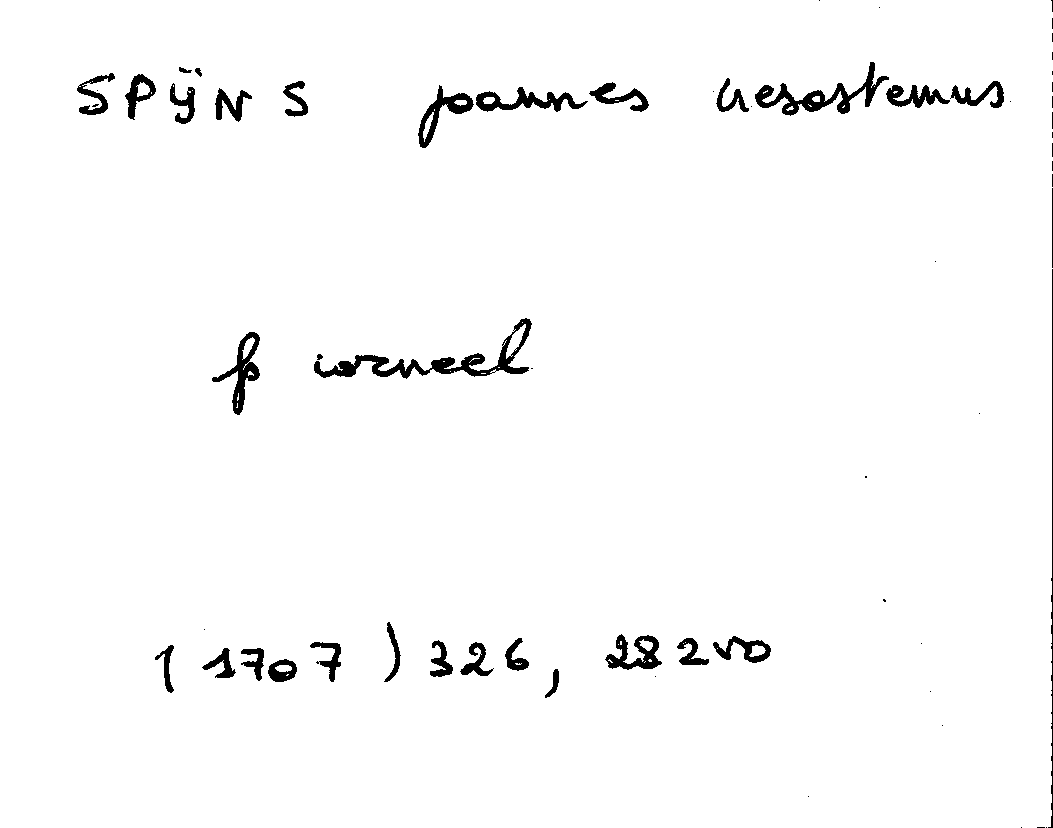 SPÿNS joannes cresostemus
fs corneel
(1707) 326, 282vo